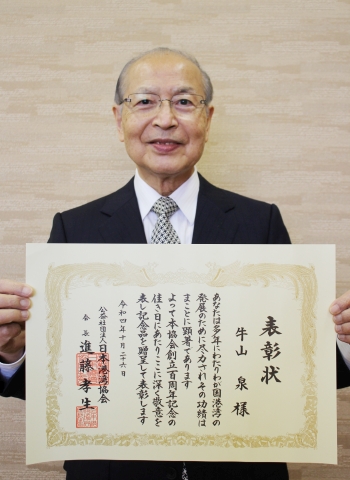 表彰状
牛山 泉 様
あなたは多年にわたりわが国港湾の
発展のために尽力されその功績は
まことに顕著であります
よって本協会創立百周年記念の
佳き日にあたりここに深く敬意を
表し記念品を贈呈して表彰します
令和四年十月二十六日
公益社団法人日本港湾協会
会長 進藤孝生